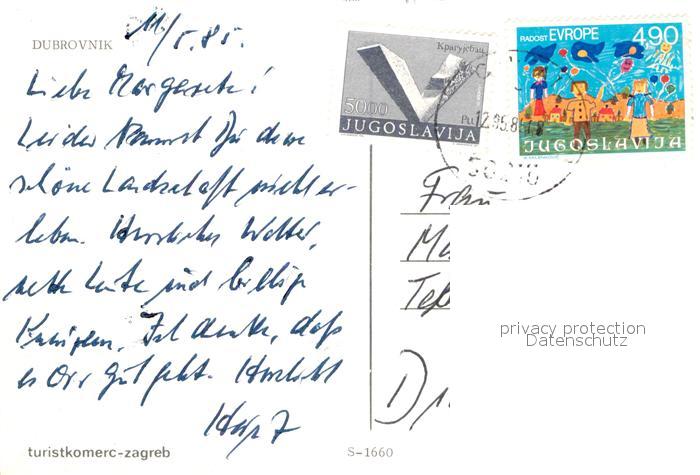 DUBROVNIK
11/5.85.
Liebe Margarete!
Leider kannst Du diese
schöne Landschaft nicht er-
leben. Herrliches Wetter,
nette Leute und billige
Kneipen. Ich denke, daß
es Dir gut geht. Herzlichst
Крагујевац
5000
JUGOSLAVIJA
RADOST EVROPE 490
JUGOSLAVIJA
12.05.8
50210
Frau
privacy protection
Datenschutz
turistkomerc-zagreb
S-1660